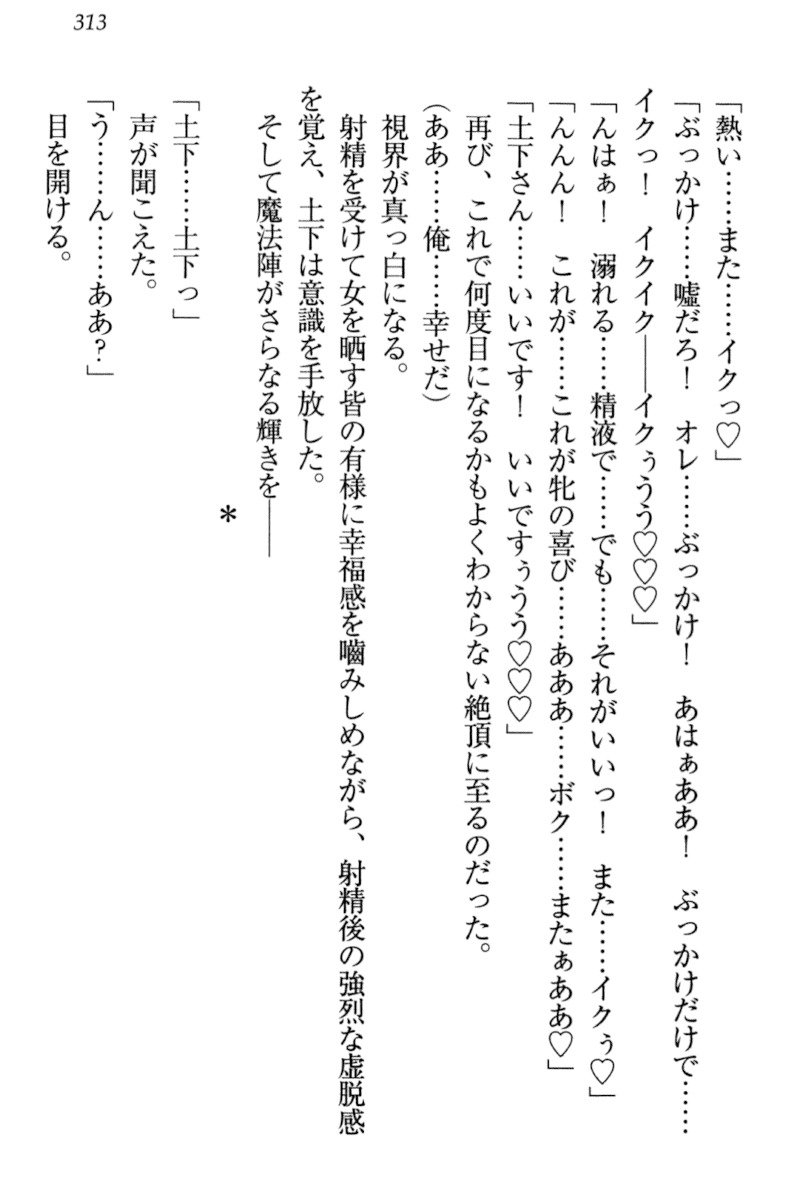 313
「熱い……また……イクっ♡」
「ぶっかけ……嘘だろ！　オレ……ぶっかけ！　あはぁああ！　ぶっかけだけで……
イクっ！　イクイク――イクぅうう♡♡♡」
「んはぁ！　溺れる……精液で……でも……それがいいっ！　また……イクぅ♡」
「んんん！　これが……これが牝の喜び……あああ……ボク……またぁああ♡」
「土下さん……いいです！　いいですぅうう♡♡♡」
再び、これで何度目になるかもよくわからない絶頂に至るのだった。
（ああ……俺……幸せだ）
視界が真っ白になる。
射精を受けて女を晒す皆の有様に幸福感を噛みしめながら、射精後の強烈な虚脱感
を覚え、土下は意識を手放した。
そして魔法陣がさらなる輝きを――
＊
「土下……土下っ」
声が聞こえた。
「う……ん……ああ？」
目を開ける。